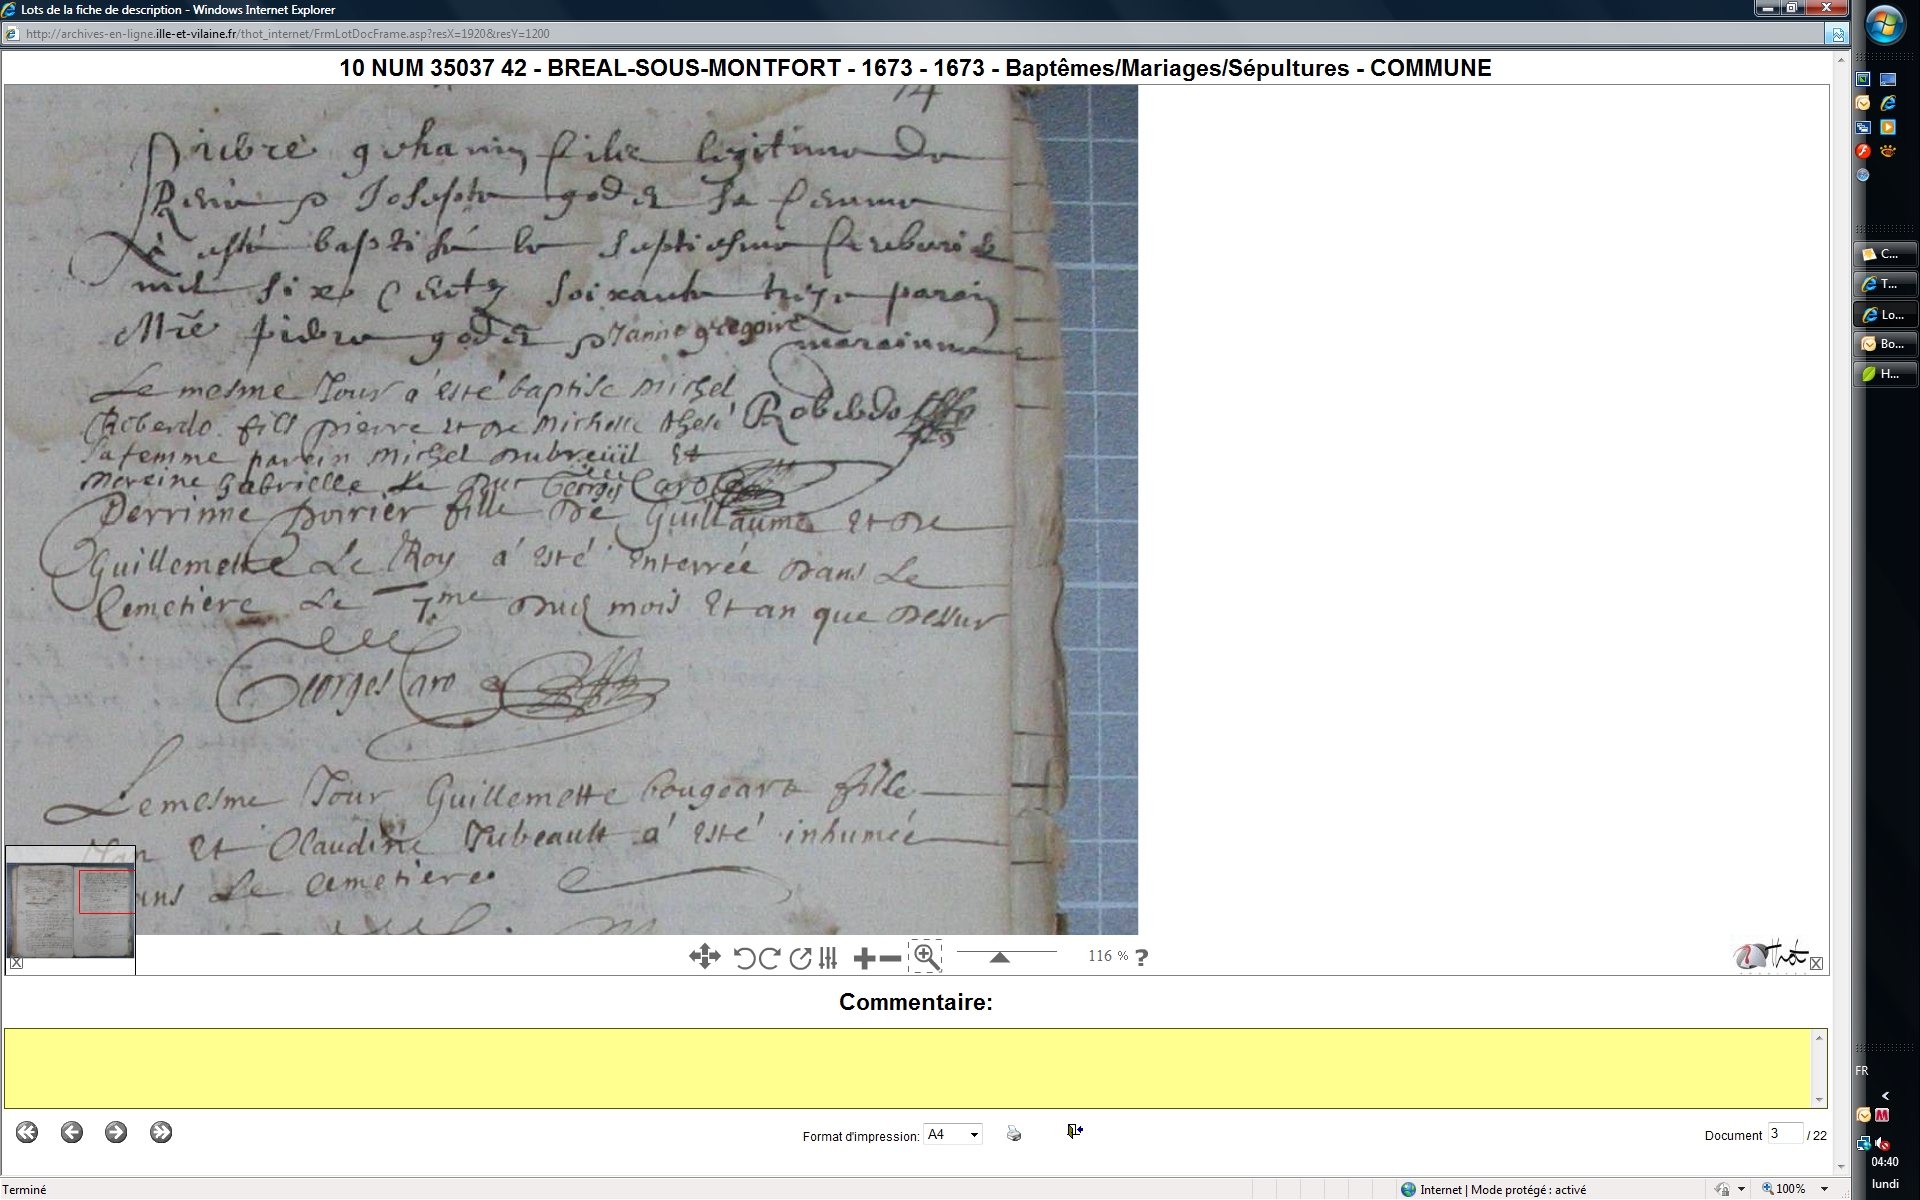 Lots de la fiche de description - Windows Internet Explorer
http://archives-en-ligne.ille-et-vilaine.fr/thot_internet/FrmLotDocFrame.asp?resX=1920&resY=1200
10 NUM 35037 42 - BREAL-SOUS-MONTFORT - 1673 - 1673 - Baptêmes/Mariages/Sépultures - COMMUNE
14
Pierre fille legitime de
René Joseph godet sa femme
à esté baptisé le septiesme febvrier
mil six centz soixante treze parain
Mre pierre godet Janne gregoire marainne
Le mesme Jour a esté baptisé Michel
fils pierre et de Michelle
Sa femme parein Michel dubreüil et
Mereine Gabrielle Le duc Georges Caro
Perrinne poirier fille de Guillaume et de
Guillemette Le Roy a esté enterrée dans Le
Cemetiere Le 7me dud mois et an que dessus
Georges Caro
Le mesme Jour Guillemette bougeart fille
Jan et Claudine Jubeault a esté inhumée
Le cemetiere
116 % ?
Thot
Commentaire:
Format d'impression: A4
Document 3 / 22
Terminé
Internet | Mode protégé : activé
100%
C...
T...
Lo...
Bo...
H...
FR
04:40
lundi